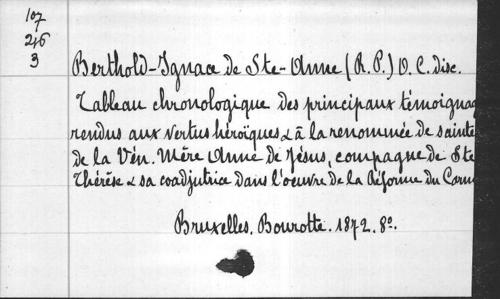 107
246
3
Berthold-Ignace de Ste-Anne (R.P.) O.C. disc.
Tableau chronologique des principaux témoignag
rendus aux vertus héroïques & à la renommée de sainte
de la Vén. Mère Anne de Jésus, compagne de Ste
Thérèse & sa coadjutrice dans l'oeuvre de la Réforme du Carm
Bruxelles, Bourotte. 1872. 8º.